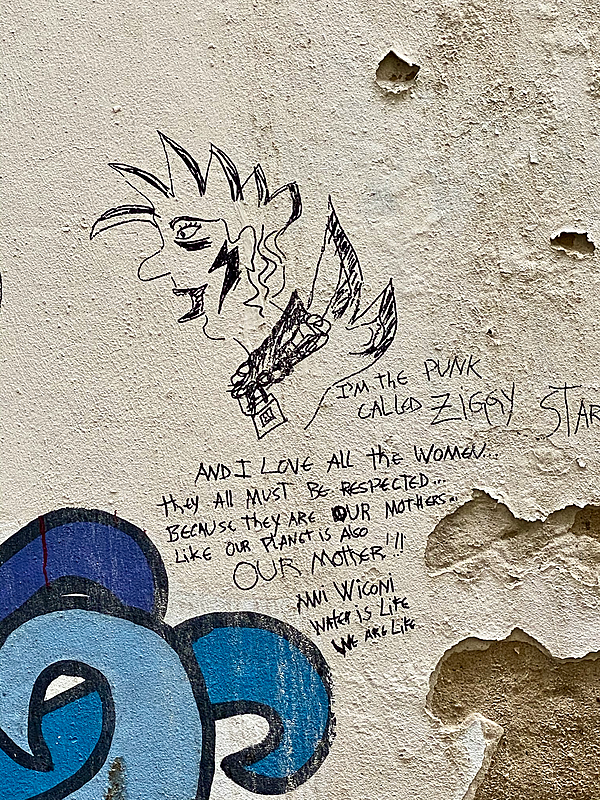 I'M THE PUNK
CALLED ZIGGY STAR
AND I LOVE ALL the WOMEN...
they ALL MUST BE RESPECTED...
BECAUSE they ARE OUR MOTHERS...
LIKE OUR PLANET IS ALSO
OUR MOTHER!!!
MNI WICONI
WATER IS LIFE
WE ARE LIFE